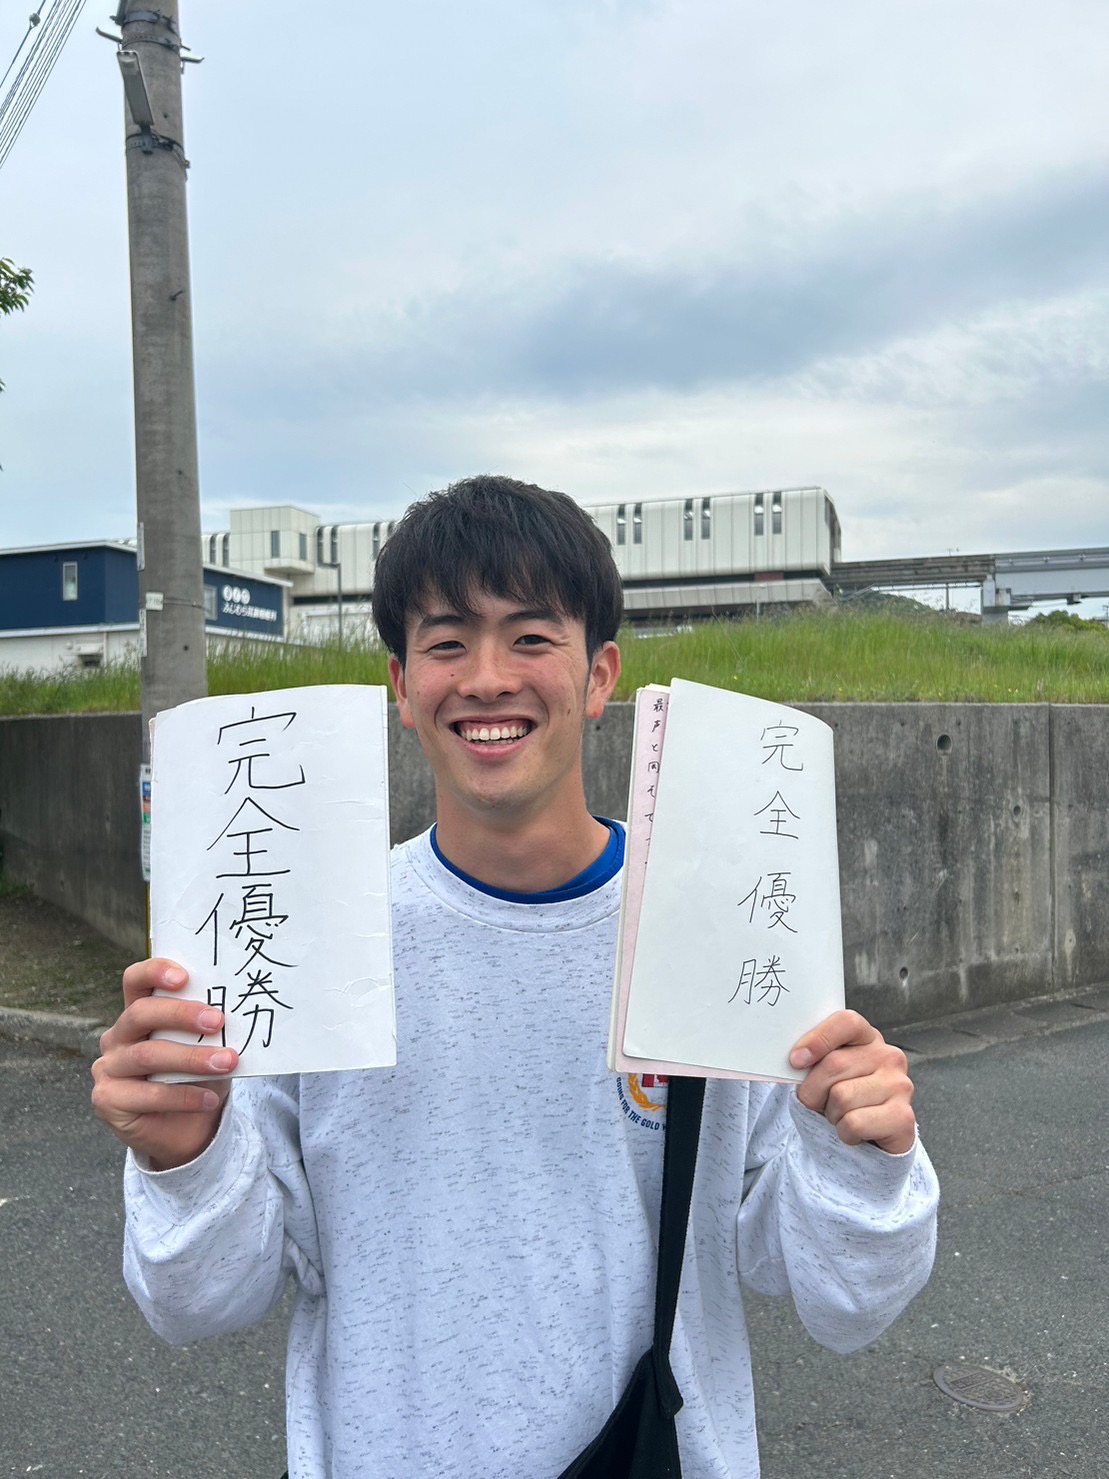 完全優勝
最戸と同じて
完全優勝
GOING FOR THE GOLD